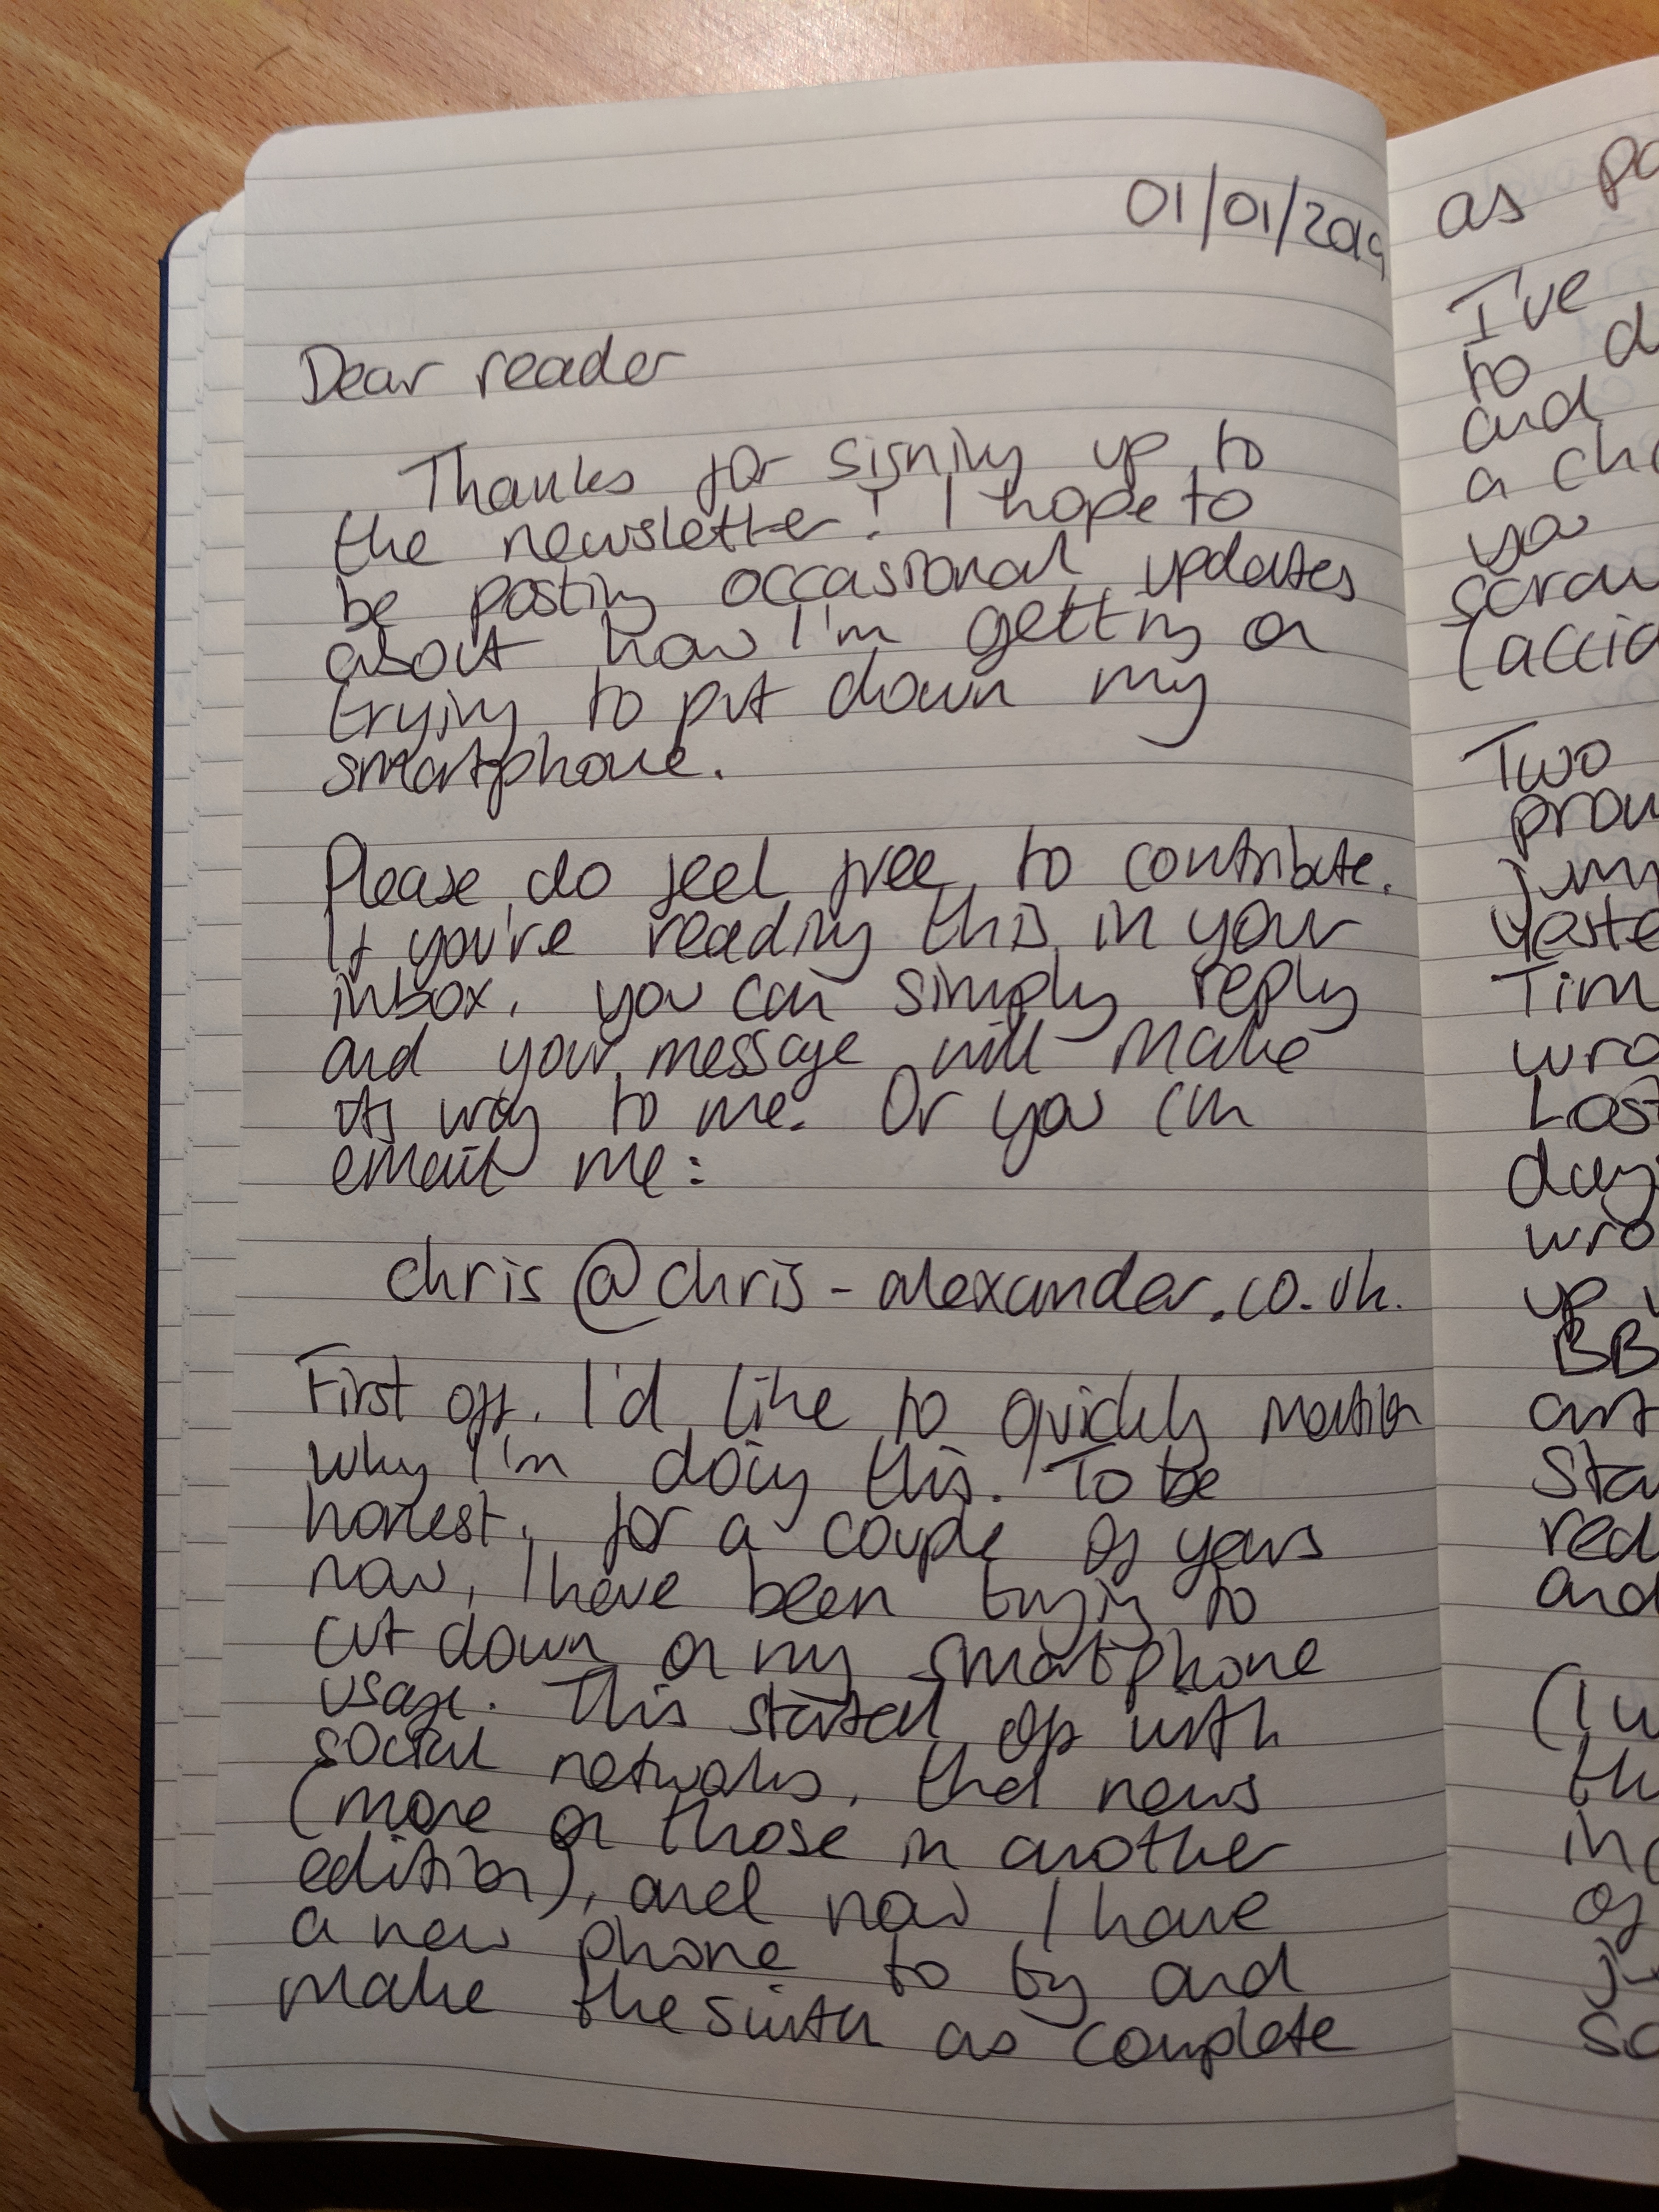 01/01/2019
Dear reader
Thanks for signing up to
the newsletter! I hope to
be posting occasional updates
about how I'm getting on
trying to put down my
smartphone.
Please do feel free to contribute.
If you're reading this in your
inbox, you can simply reply
and your message will make
its way to me. Or you can
email me:
chris@chris-alexander.co.uk.
First off, I'd like to quickly mention
why I'm doing this. To be
honest, for a couple of years
now, I have been trying to
cut down on my smartphone
usage. This started off with
social networks, then news
(more on those in another
edition), and now I have
a new phone to try and
make the switch as complete
as
I've
to
and
a
you
Two
up
and
(I
of